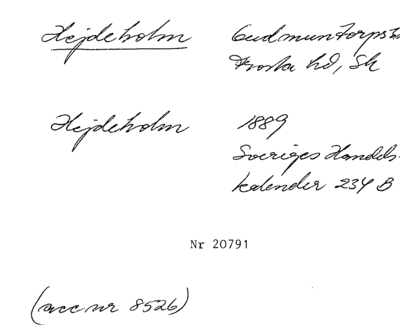 Hejdeholm Gudmuntorps
Frosta hd, Sk
Hejdeholm 1889
Sveriges Handels-
kalender 234 B
Nr 20791
(acc nr 8526)